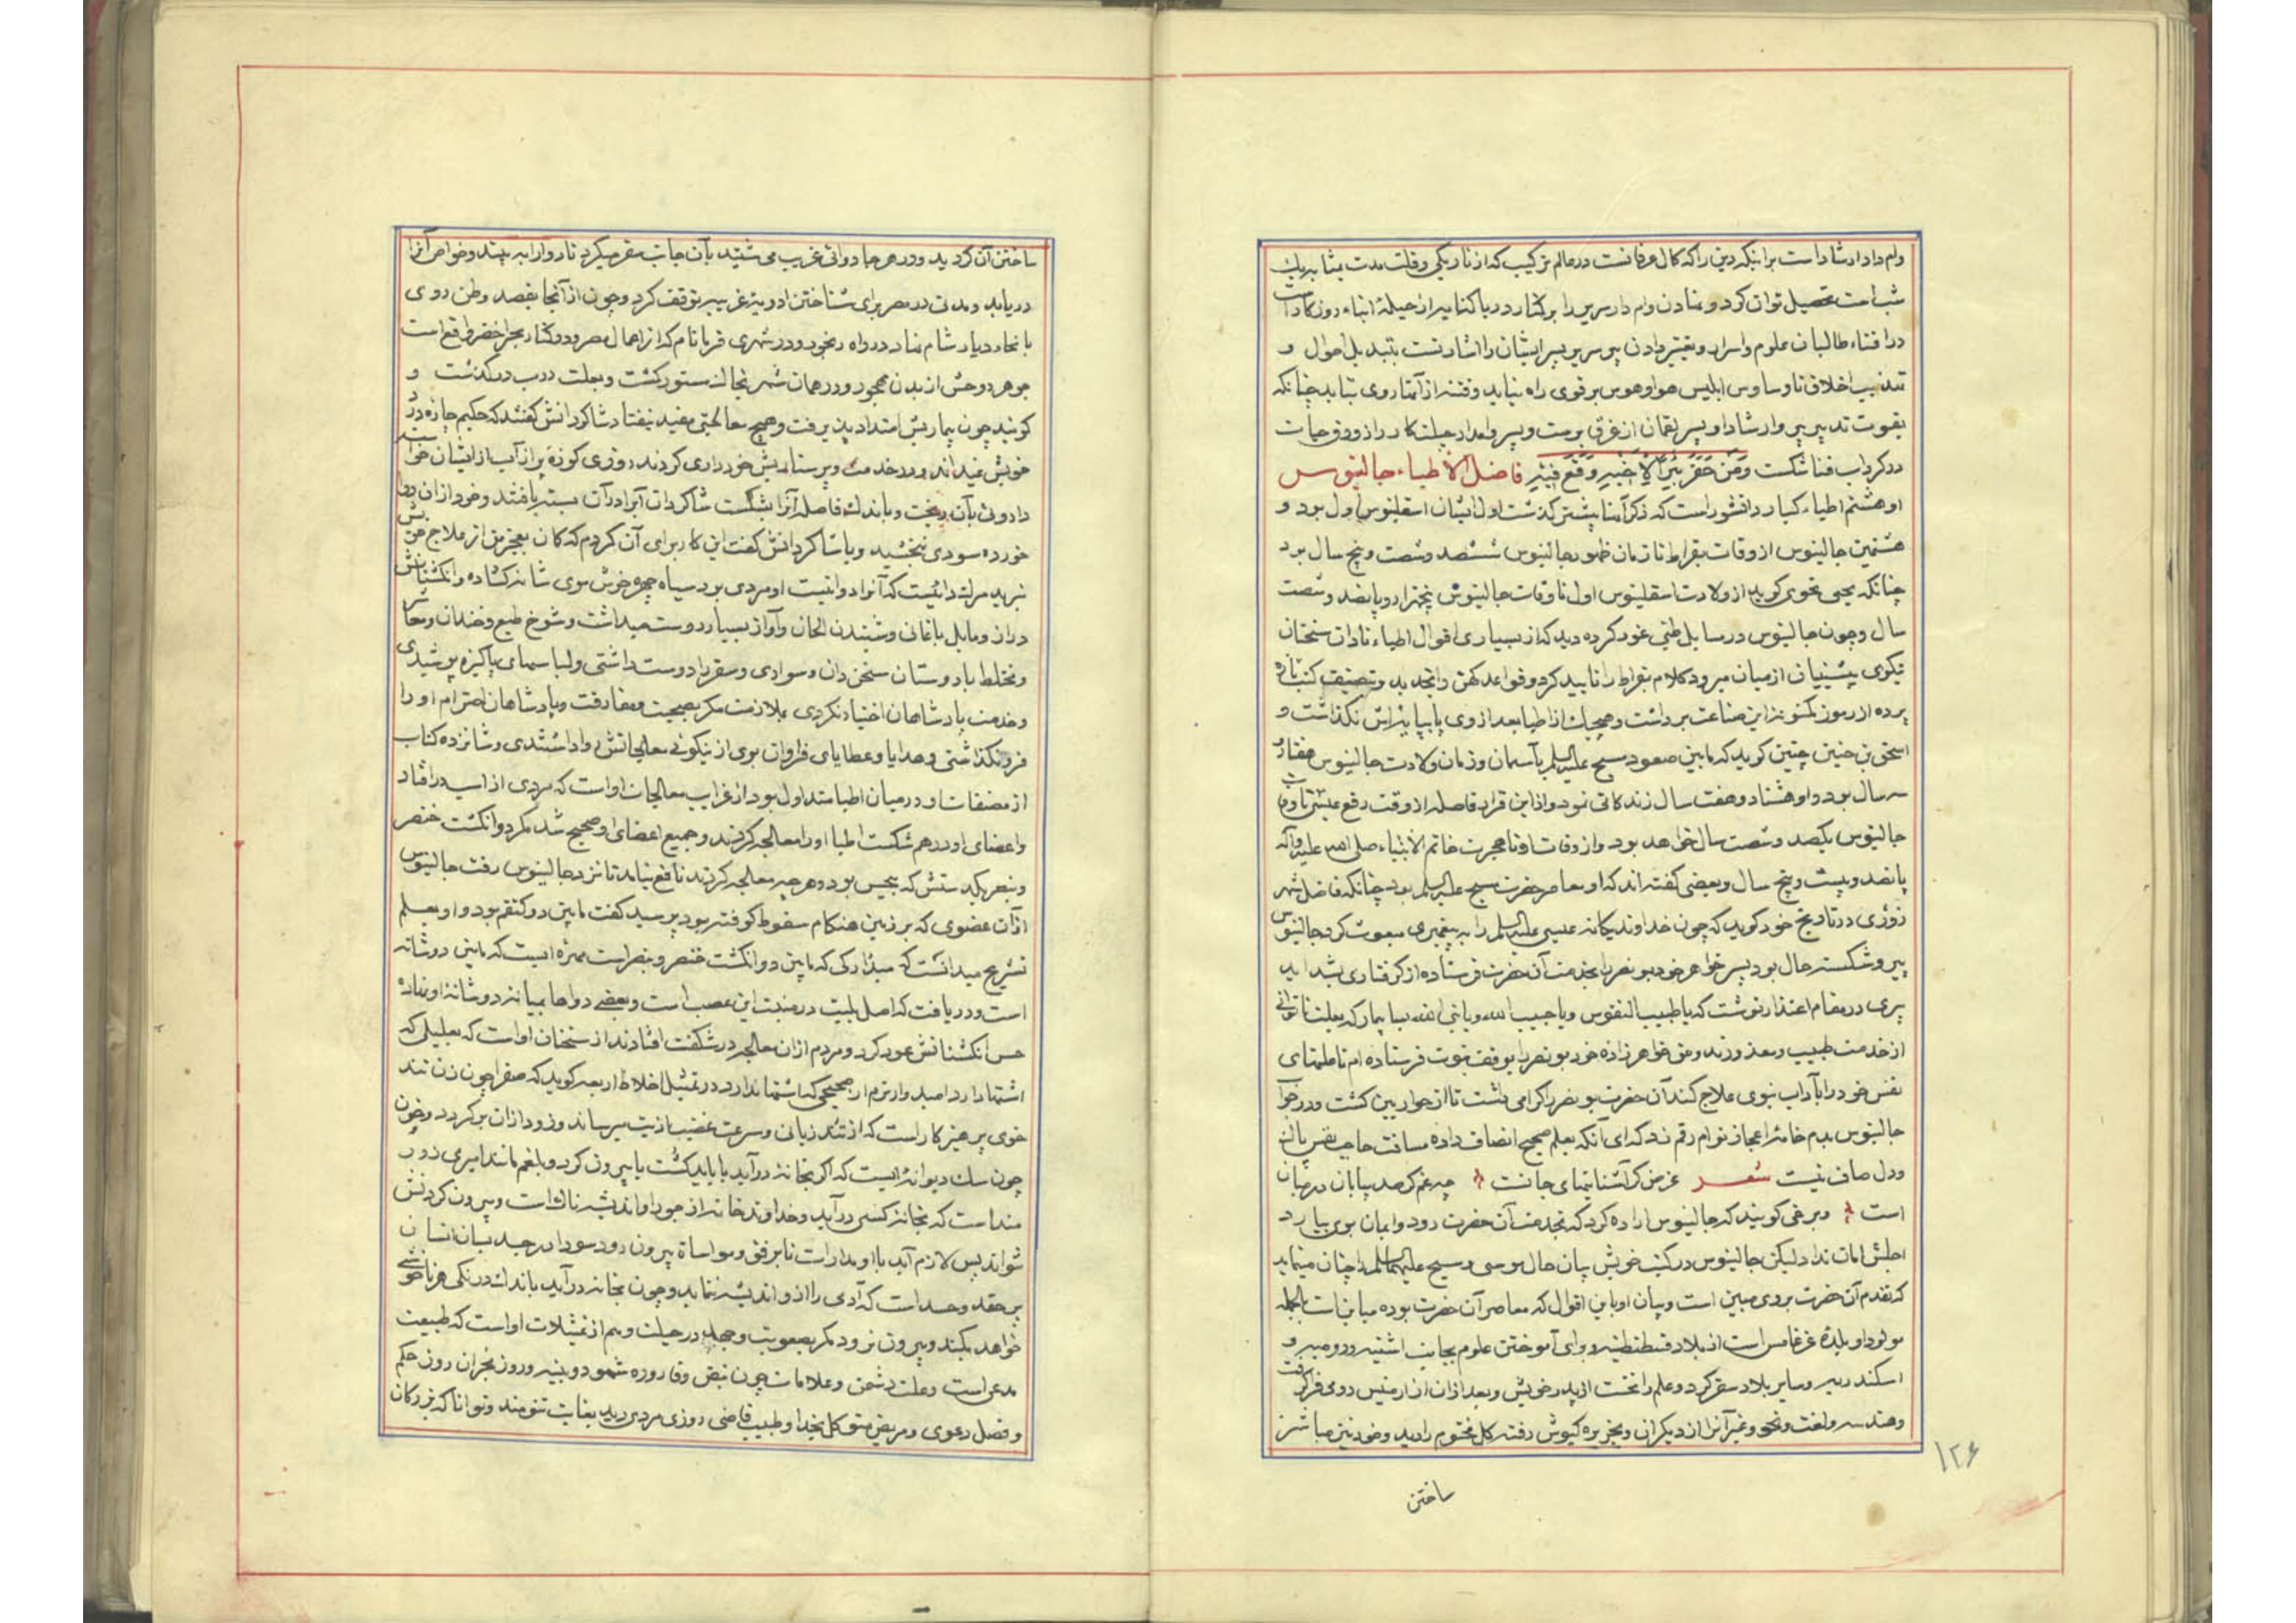 وام داد ارشاد است براینکه دین را که کمال عرفانست در عالم ترکیب که از تاریکی و قلت مدت بمثابه یک
شب است تحصیل توان کرد و نهادن وام دار سریر را بر کنار دریا کنایه از حیلهٔ ابناء روزگار است
در افناء طالبان علوم و اسرار و تغییر دادن پیر سریر پسر ایشان را اشارتست بتبدیل احوال و
تهذیب اخلاق تا وساوس ابلیس هوا و هوس بر قوی راه نیابد و فتنه از آنها روی نتابد چنانکه
بقوت تدبیر پیر و ارشاد او پسر لقمان از غرق برست و پسر وامدار حیلت کار را زورق حیات
در گرداب فنا شکست وَمَن حَفَرَ بِئراً لِاَخیهِ وَقَعَ فیهِ فاضل الاطباء جالینوس
او هشتم اطباء کبار دانشور است که ذکر آنها پیشتر گذشت اول ایشان اسقلینوس اول بود و
هشتمین جالینوس از وفات بقراط تا زمان ظهور جالینوس ششصد و شصت و پنج سال بود
چنانکه یحیی نحوی گوید از ولادت اسقلینوس اول تا وفات جالینوس پنجهزار و پانصد و شصت
سال و چون جالینوس در مسایل طبی غور کرده دید که از بسیاری اقوال اطباء نادان سخنان
نیکوی پیشینیان از میان میرود کلام بقراط را تایید کرد و قواعد کهن را تجدید و بتصنیف کتب تازه
پرده از رموز مکنونه این صناعت برداشت و هیچیک از اطبا بعد از وی پا بپایه‌اش نگذاشت و
اسحق بن حنین چنین گوید که مابین صعود مسیح علیه السلم بآسمان و زمان ولادت جالینوس هفتاد
سه سال بود و او هشتاد و هفت سال زندگانی نمود و از این قرار فاصله از وقت رفع عیسی تا وفات
جالینوس یکصد و شصت سال خواهد بود و از وفات او تا هجرت خاتم الانبیاء صلی الله علیه و آله
پانصد و بیست و پنج سال و بعضی گفته‌اند که او معاصر حضرت مسیح علیه السلم بود چنانکه فاضل شهر
زوری در تاریخ خود گوید که چون خداوند یگانه عیسی علیه السلم را به پیغمبری مبعوث کرد جالینوس
پیر و شکسته حال بود پسر خواهر خود بونصر را بخدمت آن حضرت فرستاده از گرفتاری بشداید
پیری در مقام اعتذار نوشت که یا طبیب النفوس و یا حبیب الله و یا نبی الله بسا بیمار که بعلت ناتوانی
از خدمت طبیب معذورند و من خواهرزاده خود بونصر را بوقف نبوت فرستاده‌ام تا علتهای
نفس خود را بآداب نبوی علاج کند آن حضرت بونصر را گرامی داشت تا از حواریین گشت و در جواب
جالینوس بدم خامهٔ اعجاز توام رقم زد که ای آنکه بعلم صحیح انصاف داده مسافت حاجب نفس پاک
و دل صاف نیست شعر غرض گر آشناییهای جانست چه غم گر صد بیابان در میان
است و برخی گویند که جالینوس اراده کرد که بخدمت آن حضرت رود و ایمان بوی بیارد
اجلش امان نداد لیکن جالینوس در کتب خویش بیان حال موسی و مسیح علیهما السلم را چنان مینماید
که تقدم آن حضرت بر وی مبین است و بیان او با این اقوال که معاصر آن حضرت بوده مباین است بالجمله
مولد او بلدهٔ غرغامس است از بلاد قسطنطنیه و برای آموختن علوم بجانب اشنیه و رومیه و
اسکندریه و سایر بلاد سفر کرد و علم را نخست از پدر خویش و بعد از آن از ارمنیس رومی فرا گرفت
و هندسه و لغت و نحو و غیر آن را از دیگران و بجزیره کیوش رفته گل مختوم را دید و خود نیز مباشر
ساختن
۱۲۶
ساختن آن گردید و در هر جا دوائی غریب می شنید بآن جانب سفر میکرد تا دوا را به بیند و خواص آنرا
دریابد و مدتی در مصر برای شناختن ادویهٔ غریبه توقف کرد و چون از آنجا بقصد وطن روی
بانحاء دیار شام نهاد در راه رنجور و در شهری فرما نام که از اعمال مصر و در کنار بحر اخضر واقع است
جوهر روحش از بدن مهجور و در همان شهر بخاک مستور گشت و بعلت ذرب درگذشت و
گویند چون بیماریش امتداد پذیرفت و هیچ معالجتی مفید نیفتاد شاگردانش گفتند که حکیم چاره درد
خویش نمیداند و در خدمت و پرستاریش خودداری کردند روزی کوزهٔ پر از آب از ایشان خواست
دارویی بآن ریخت و باندک فاصله آنرا بشکست شاگردان آب را در آن بسته یافتند و خود از آن دوا
خورده سودی نبخشید و با شاگردانش گفت این کار برای آن کردم که گمان بعجز من از علاج خویش
نبرید مرگ دائیست که آنرا دوا نیست او مردی بود سیاه چهره خوش موی شانه گشاده و انگشتانش
دراز و مایل باغانی و شنیدن الحان و آواز بسیار دوست میداشت و شوخ طبع و خندان و معاشر
و مختلط با دوستان سخن دان و سواری و سفر را دوست داشتی و لباسهای پاکیزه پوشیدی
و خدمت پادشاهان اختیار نکردی بملازمت مگر بصحبت و مفارقت و پادشاهان احترام او را
فرو نگذاشتی و هدایا و عطایای فراوان بوی از نیکوئی معالجاتش روا داشتندی و شانزده کتاب
از مصنفات او در میان اطبا متداول بود از غرایب معالجات او است که مردی از اسب در افتاد
و اعضای او در هم شکست اطبا او را معالجه کردند و جمیع اعضای او صحیح شد مگر دو انگشت خنصر
و بنصر یکدستش که بیحس بود و هر چه معالجه کردند نافع نیامد تا نزد جالینوس رفت جالینوس
از آن عضوی که بر زمین هنگام سقوط کوفته بود پرسید گفت مابین دو کتفم بود و او بعلم
تشریح میدانست که مبدأ رکی که مابین دو انگشت خنصر و بنصر است مهره ایست که مابین دو شانه
است و دریافت که اصل بلیت در منبت این عصب است و بعضی دواها بمیانه دو شانهٔ او نهاده
حس انگشتانش عود کرد و مردم از آن معالجه در شگفت افتادند از سخنان او است که بعلیلی که
اشتها دارد امیدوارترم از صحیحی که اشتها ندارد در تمثیل اخلاط اربعه گوید که صفرا چون زن تند
خوی پرهیزکار است که از تند زبانی و سرعت غضب اذیت میرساند و زود از آن برگردد و خون
چون سگ دیوانه ایست که اگر بخانه درآید یا باید کشت یا بیرون کرد و بلغم مانند امیری زور
منداست که بخانهٔ کسی درآید و خداوند خانه از جور او اندیشه ناک است و بیرون کردنش
نتواند پس لازم آید با او مدارات تا برفق و مواساة بیرون رود سودا در جسد بسان انسان
پر حقد و حسد است که آدمی را از او اندیشه ننماید و چون بخانه درآید باندک درنگی هر ناخوشی
خواهد بکند و بیرون نرود مگر بصعوبت و جهد در حیلت و هم از تمثیلات او است که طبیعت
مدعی است و علت دشمن و علامات چون نبض و قاروره شهود و بینه و روز بحران روز حکم
و فصل دعوی و مریض متوکل بخدا و طبیب قاضی روزی مردی دید بغایت تنومند و توانا که بزرگان